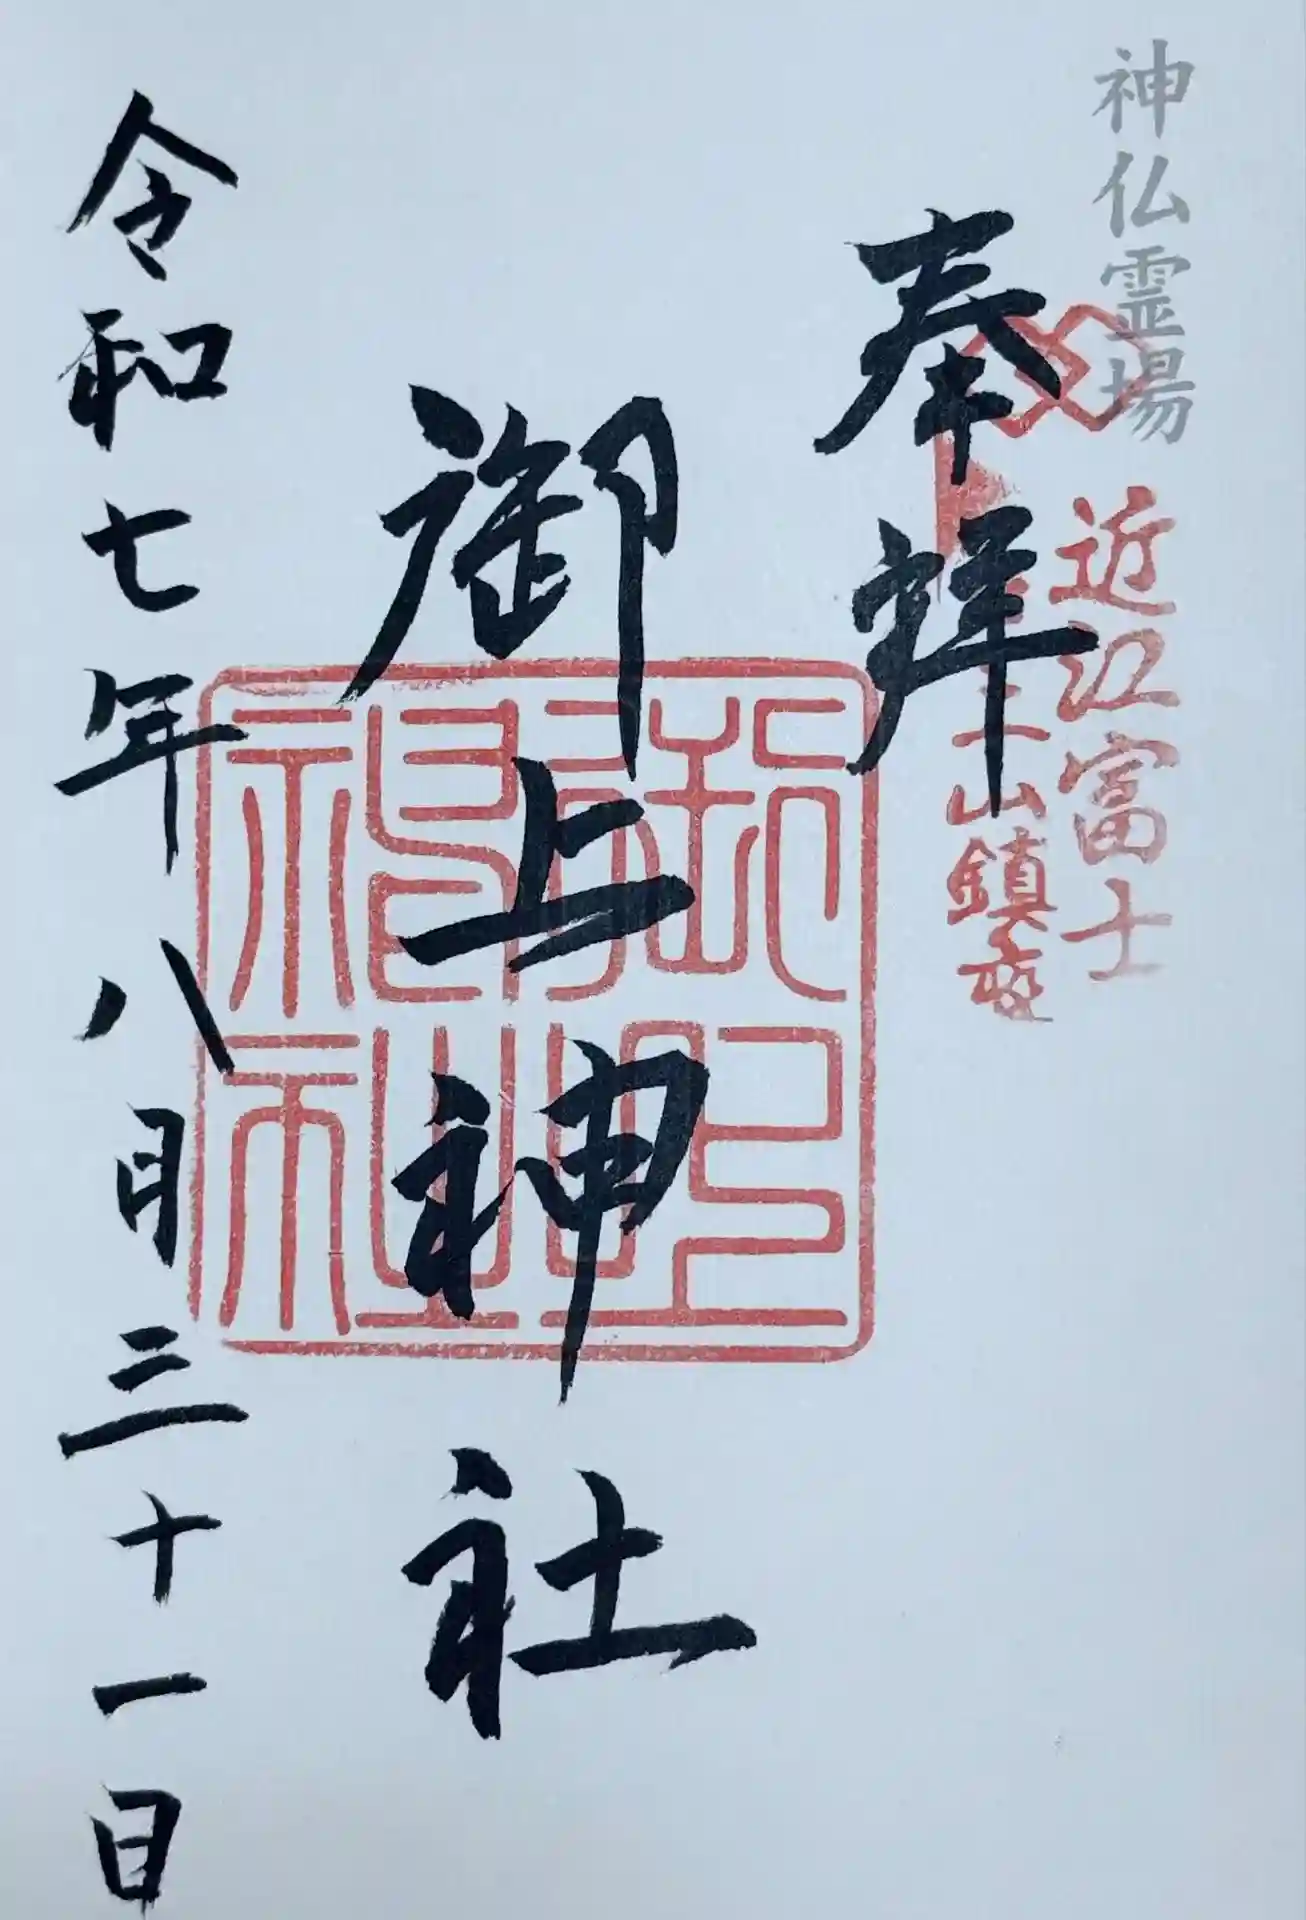 神仏霊場
近江富士
山鎮座
奉拝
御上神社
令和七年八月三十一日